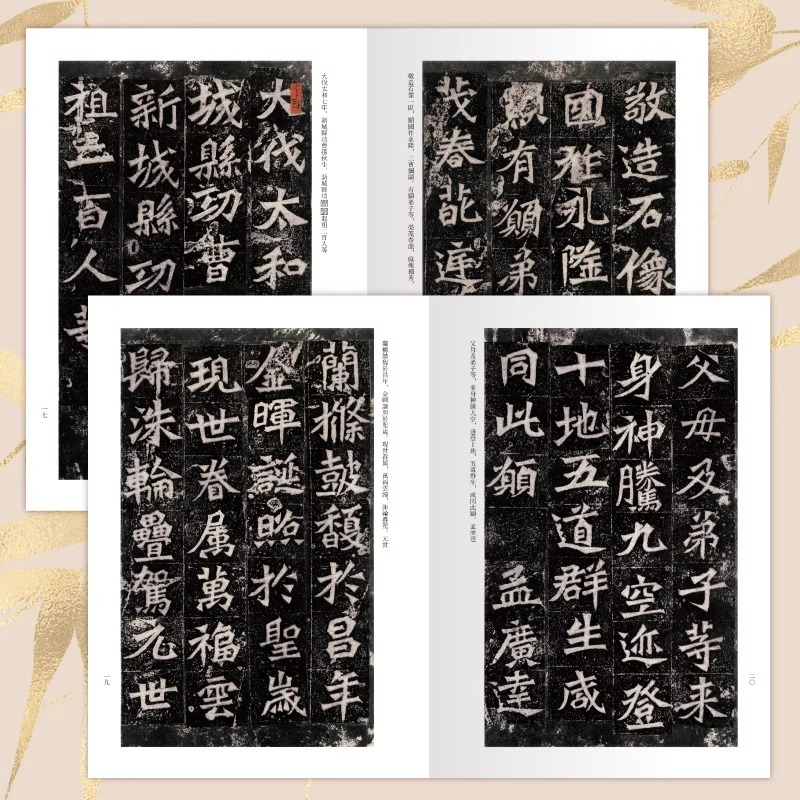 大伐太和七年,新城縣功曹孫秋生、新城縣功曹劉起祖二百人等
大伐太和
城縣功曹
新城縣功
祖二百人等
一七
敬造石像
國祚永隆
顯有願弟
茂春葩庭
敬造石像一區,願國祚永隆,三寶彌顯。有願弟子等,榮茂春葩,庭槐獨秀,
蘭條鼓馥於昌年,金暉誕照於聖歲。現世眷属,萬福雲歸,洙輪疊駕。元世
蘭條鼓馥於昌年
金暉誕照於聖歲
現世眷属萬福雲
歸洙輪疊駕元世
一九
二〇
父母及弟子等来
身神騰九空迹登
十地五道群生咸
同此願 孟廣達
父母及弟子等,来身神騰九空,迹登十地,五道群生,咸同此願。孟廣達